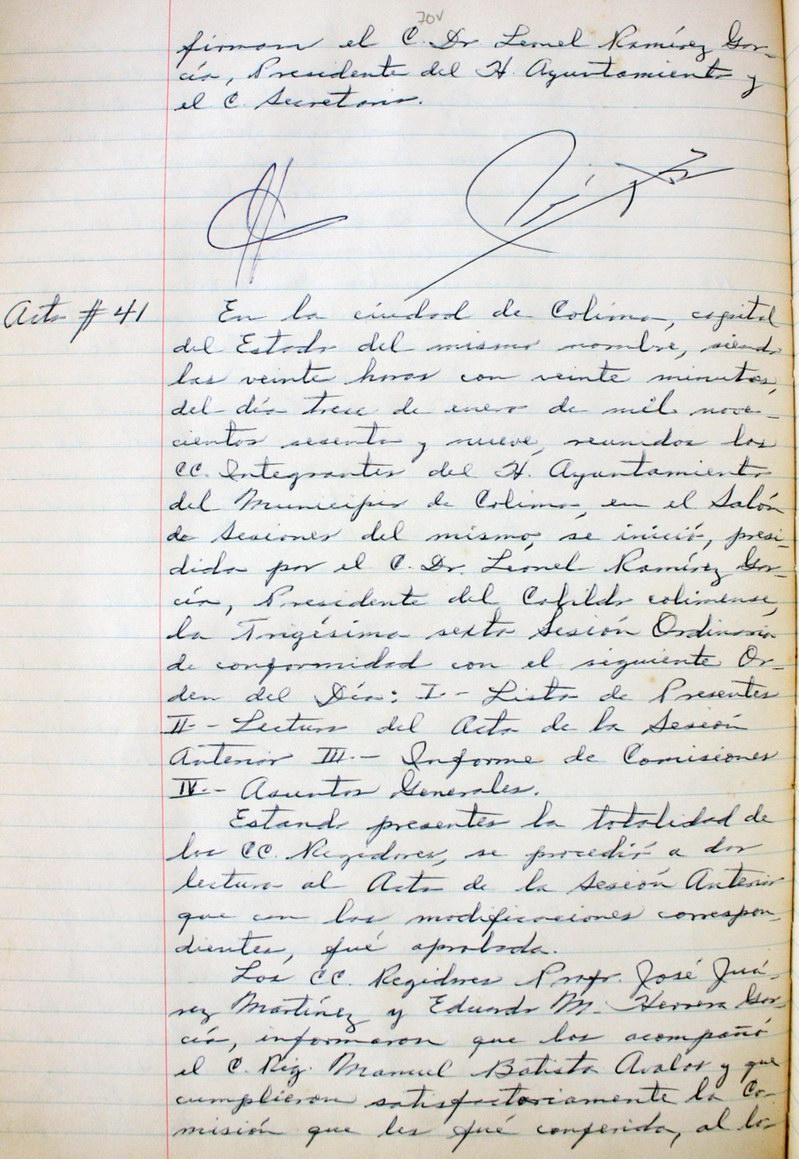 70v
firman el C. Dr. Leonel Ramírez Gar-
cía, Presidente del H. Ayuntamiento y
el C. Secretario.
Acta # 41
En la ciudad de Colima, capital
del Estado del mismo nombre, siendo
las veinte horas con veinte minutos,
del día trece de enero de mil nove-
cientos sesenta y nueve, reunidos los
CC. Integrantes del H. Ayuntamiento
del Municipio de Colima, en el Salón
de Sesiones del mismo, se inició, presi-
dida por el C. Dr. Leonel Ramírez Gar-
cía, Presidente del Cabildo colimense,
la Trigésima sexta Sesión Ordinaria
de conformidad con el siguiente Or-
den del Día: I.- Lista de Presentes
II.- Lectura del Acta de la Sesión
Anterior III.- Informe de Comisiones
IV.- Asuntos Generales.
Estando presentes la totalidad de
los CC. Regidores, se procedió a dar
lectura al Acta de la Sesión Anterior
que con las modificaciones correspon-
dientes, fué aprobada.
Los CC. Regidores Profr. José Juá-
rez Martínez y Eduardo M. Herrera Gar-
cía, informaron que los acompañó
el C. Reg. Manuel Batista Avalos y que
cumplieron satisfactoriamente la Co-
misión que les fué conferida, al lo-